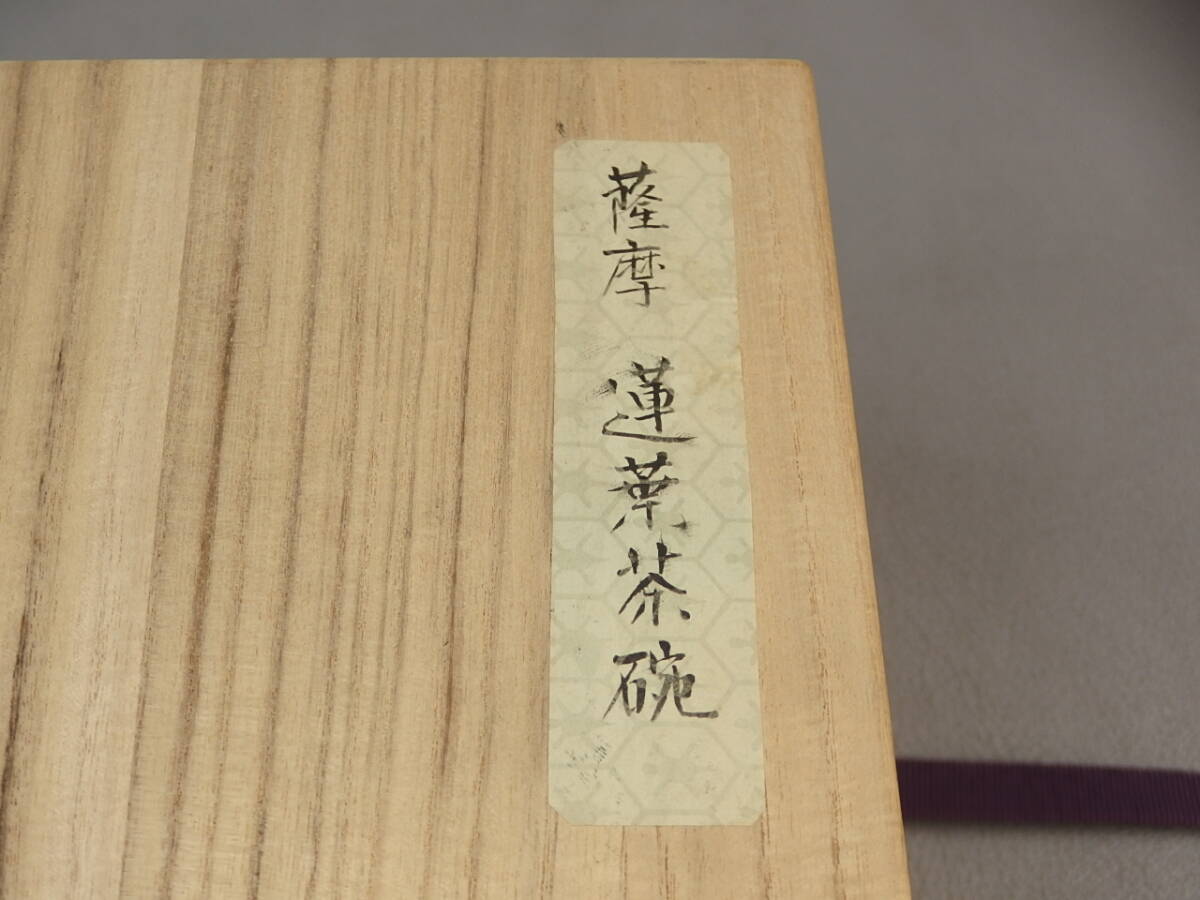 薩摩 蓮葉茶碗